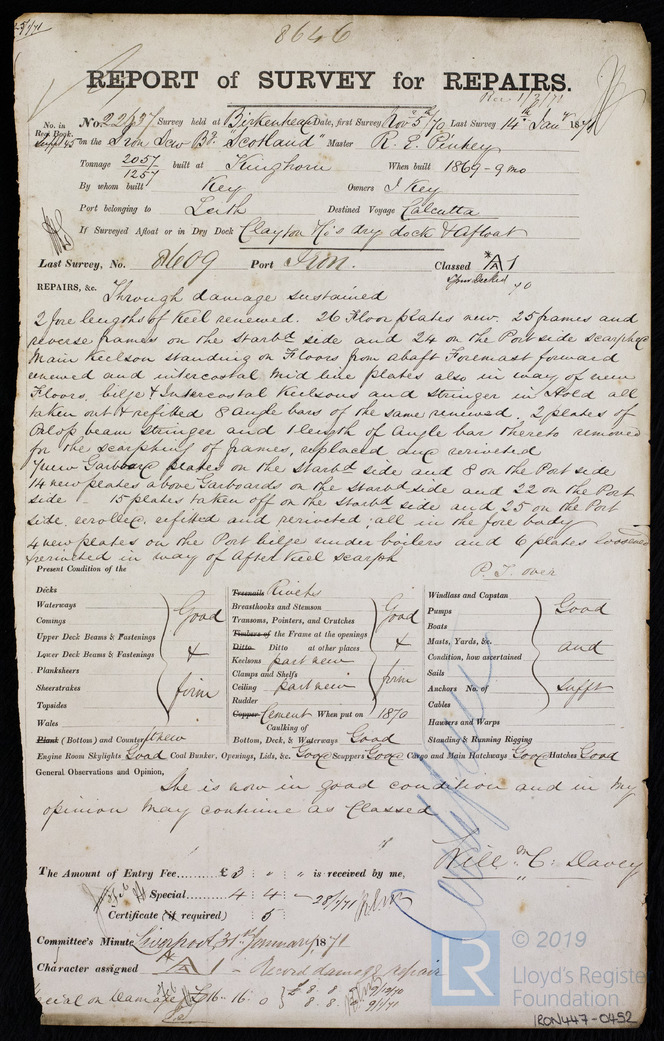 8646
REPORT of SURVEY for REPAIRS.
No. in Reg. Book. No. 22837 Survey held at Birkenhead Date, first Survey Nov 5th /70 Last Survey 14th Jany 1871
Suppt 45 on the Iron Screw Bq. "Scotland" Master R. E. Pinkey
Tonnage 2057 / 1257 built at Kinghorn When built 1869-9mo
By whom built Key Owners J Key
Port belonging to Leith Destined Voyage Calcutta
If Surveyed Afloat or in Dry Dock Clayton & Co's dry dock & Afloat
Last Survey, No. 8609 Port Iron. Classed *A1
Spar Decked 70
REPAIRS, &c. Through damage sustained
2 fore lengths of Keel renewed. 26 Floor plates new. 25 frames and
reverse frames on the Starbd side and 24 on the Port side scarphed
Main Keelson standing on Floors from abaft Foremast forward
renewed and intercostal mid line plates also in way of new
Floors, bilge & Intercostal Keelsons and stringer in Hold all
taken out & refitted 8 angle bars of the same renewed. 2 plates of
Orlop beam stringer and 1 length of angle bar thereto removed
for the scarphing of frames, replaced and reriveted
7 new Garboard plates on the Starbd side and 8 on the Port side
14 new plates above Garboards on the Starbd side and 22 on the Port
side - 15 plates taken off on the Starbd side and 25 on the Port
side, rerolled, refitted and reriveted; all in the fore body
4 new plates on the Port bilge under boilers and 6 plates loosened
& reriveted in way of after Keel scarph
P. T. over
Present Condition of the
Decks
Waterways
Comings
Upper Deck Beams & Fastenings
Lower Deck Beams & Fastenings
Planksheers
Sheerstrakes
Topsides
Wales
Good & firm
Plank (Bottom) and Counter
Treenails Rivets
Breasthooks and Stemson
Transoms, Pointers, and Crutches
Timbers of the Frame at the openings
Ditto Ditto at other places
Keelsons part new
Clamps and Shelfs
Ceiling part new
Rudder
Good & firm
Copper Cement When put on 1870
Caulking of
Bottom, Deck, & Waterways Good
Windlass and Capstan
Pumps
Boats
Masts, Yards, &c.
Condition, how ascertained
Sails
Anchors No. of
Cables
Good and Sufft
Hawsers and Warps
Standing & Running Rigging
Engine Room Skylights Good Coal Bunker, Openings, Lids, &c. Good Scuppers Good Cargo and Main Hatchways Good Hatches Good
General Observations and Opinion,
She is now in good condition and in my
opinion may continue as Classed
Willm C. Davey
The Amount of Entry Fee...... £3 " " is received by me,
Special...... 4 4 - 28/1/71
Certificate (if required) 5
Committee's Minute Liverpool 31st January, 1871
Character assigned *A1 - Record damage repair
Special on Damage £16-16:0 £8.8. 9/12/70
8.8. 9/2/71
© 2019
LR
Lloyd's Register
Foundation
IRON447-0452